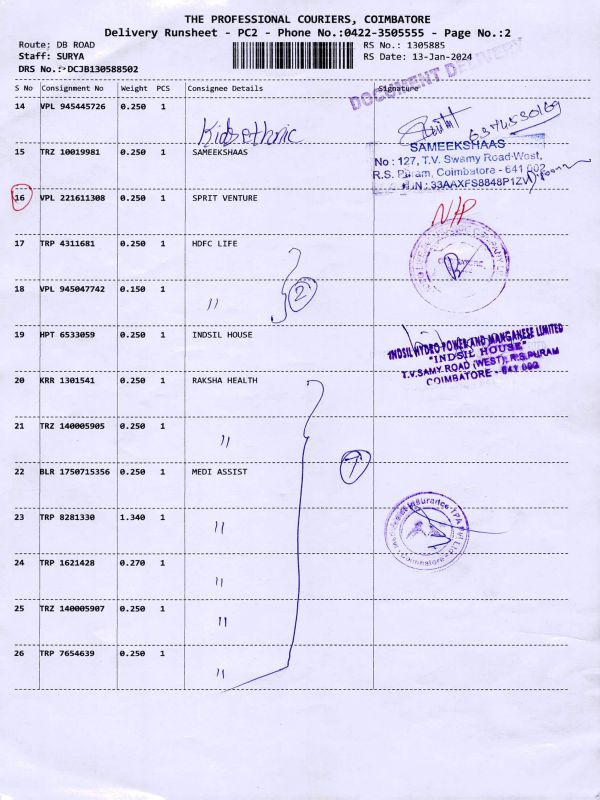 THE PROFESSIONAL COURIERS, COIMBATORE
Delivery Runsheet - PC2 - Phone No.:0422-3505555 - Page No.:2
Route: DB ROAD
RS No.: 1305885
Staff: SURYA
RS Date: 13-Jan-2024
DRS No.:-DCJB130588502
DOCUMENT DELIVERY
S No Consignment No Weight PCS Consignee Details Signature
14 VPL 945445726 0.250 1
Kids ethnic
6374530169
15 TRZ 10019981 0.250 1 SAMEEKSHAAS
SAMEEKSHAAS
No : 127, T.V. Swamy Road-West,
R.S. Puram, Coimbatore - 641 002
: 33AAXFS8848P1ZV
16 VPL 221611308 0.250 1 SPRIT VENTURE
N/P
17 TRP 4311681 0.250 1 HDFC LIFE
18 VPL 945047742 0.150 1 "
2
19 HPT 6533059 0.250 1 INDSIL HOUSE
INDSIL HYDRO POWER AND MANGANESE LIMITED
"INDSIL HOUSE"
T.V.SAMY ROAD (WEST), R.S.PURAM
COIMBATORE - 641 002
20 KRR 1301541 0.250 1 RAKSHA HEALTH
21 TRZ 140005905 0.250 1 "
7
22 BLR 1750715356 0.250 1 MEDI ASSIST
23 TRP 8281330 1.340 1 "
24 TRP 1621428 0.270 1 "
25 TRZ 140005907 0.250 1 "
26 TRP 7654639 0.250 1 "